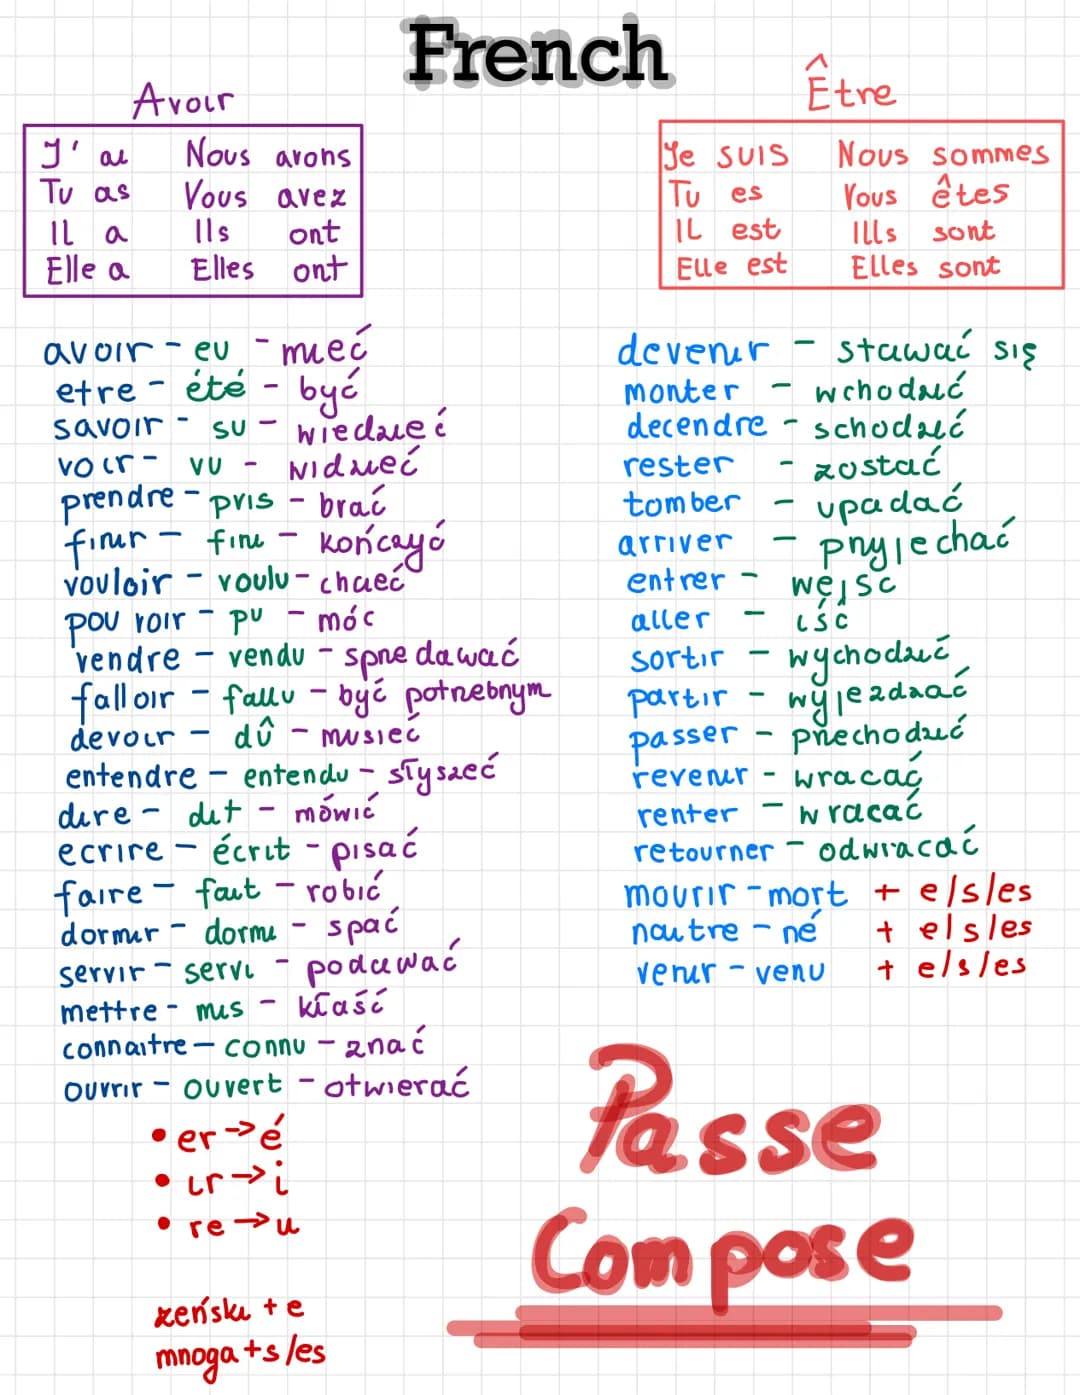 French
Avoir
J' ai Nous avons
Tu as Vous avez
Il a Ils ont
Elle a Elles ont
Être
Je suis Nous sommes
Tu es Vous êtes
IL est Ills sont
Elle est Elles sont
avoir - eu - mieć
etre - été - być
savoir - su - wiedzieć
voir - vu - widzieć
prendre - pris - brać
finir - fini - kończyć
vouloir - voulu - chcieć
pouvoir - pu - móc
vendre - vendu - sprzedawać
falloir - fallu - być potrzebnym
devoir - dû - musieć
entendre - entendu - słyszeć
dire - dit - mówić
ecrire - écrit - pisać
faire - fait - robić
dormir - dormi - spać
servir - servi - podawać
mettre - mis - kłaść
connaitre - connu - znać
ouvrir - ouvert - otwierać
• er → é
• ir → i
• re → u
żeński + e
mnoga + s/es
devenir - stawać się
monter - wchodzić
decendre - schodzić
rester - zostać
tomber - upadać
arriver - przyjechać
entrer - wejsc
aller - iść
sortir - wychodzić
partir - wyjezdzać
passer - przechodzić
revenir - wracać
renter - wracać
retourner - odwracać
mourir - mort + e/s/es
naitre - né + e/s/es
venir - venu + e/s/es
Passe
Compose